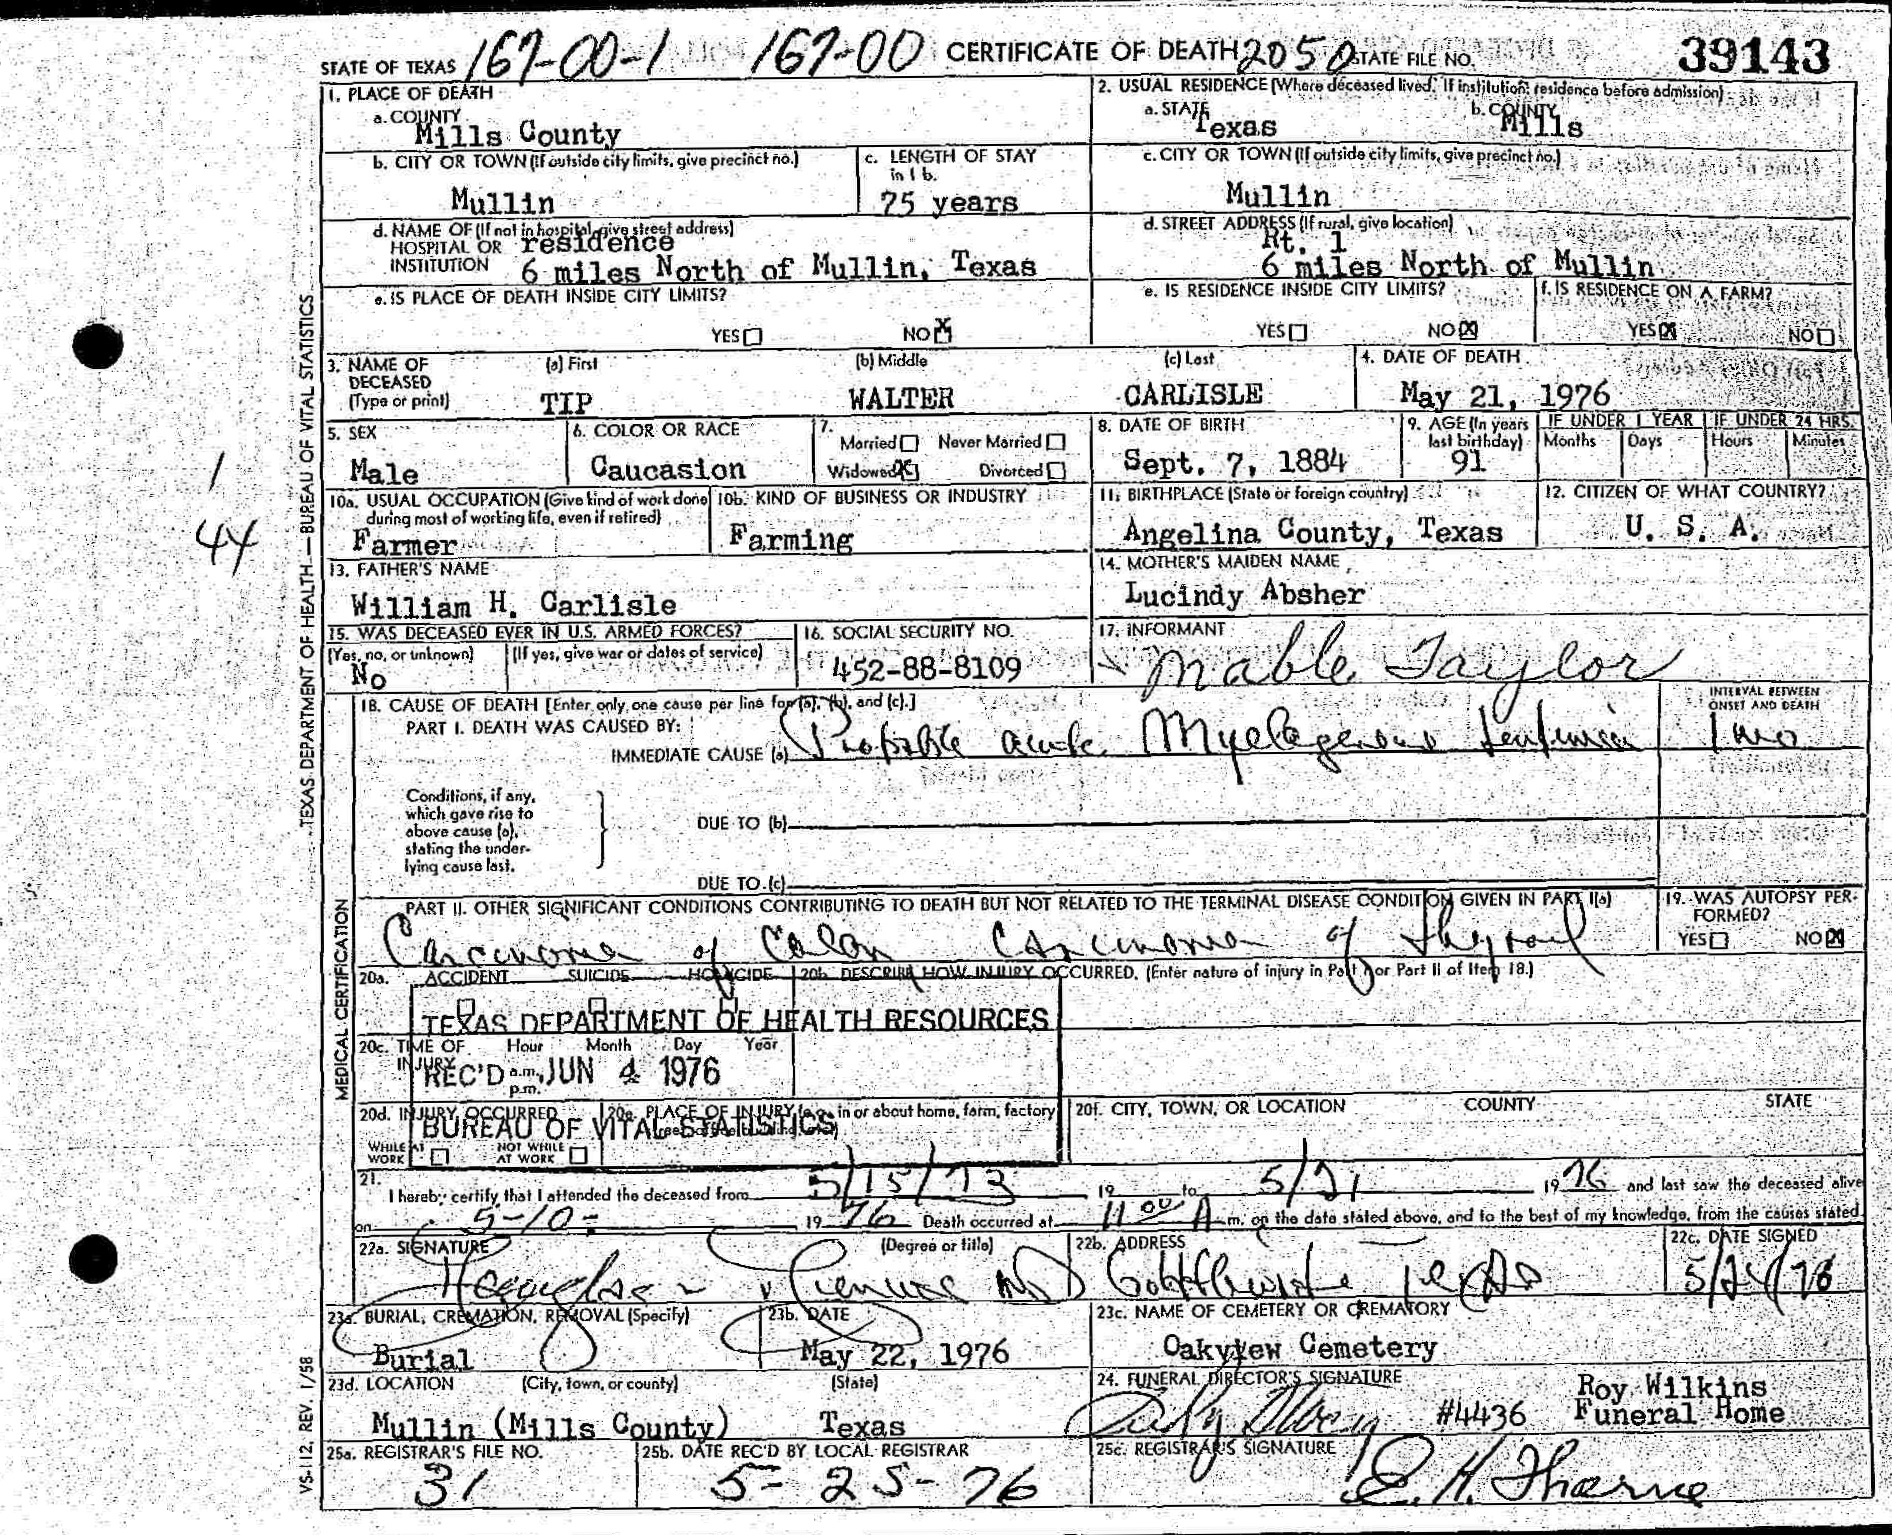 STATE OF TEXAS 167-00-1 167-00 CERTIFICATE OF DEATH 2050 STATE FILE NO. 39143
1. PLACE OF DEATH
a. COUNTY
Mills County
2. USUAL RESIDENCE (Where deceased lived. If institution: residence before admission)
a. STATE
Texas
b. COUNTY
Mills
b. CITY OR TOWN (If outside city limits, give precinct no.)
Mullin
c. LENGTH OF STAY
in 1 b.
75 years
c. CITY OR TOWN (If outside city limits, give precinct no.)
Mullin
d. NAME OF (If not in hospital, give street address)
HOSPITAL OR residence
INSTITUTION 6 miles North of Mullin, Texas
d. STREET ADDRESS (If rural, give location)
Rt. 1
6 miles North of Mullin
e. IS PLACE OF DEATH INSIDE CITY LIMITS?
YES NO X
e. IS RESIDENCE INSIDE CITY LIMITS?
YES NO X
f. IS RESIDENCE ON A FARM?
YES X NO
3. NAME OF
DECEASED
(Type or print)
(a) First
TIP
(b) Middle
WALTER
(c) Last
CARLISLE
4. DATE OF DEATH
May 21, 1976
5. SEX
Male
6. COLOR OR RACE
Caucasion
7.
Married Never Married
Widowed X Divorced
8. DATE OF BIRTH
Sept. 7, 1884
9. AGE (In years
last birthday)
91
IF UNDER 1 YEAR
Months Days
IF UNDER 24 HRS.
Hours Minutes
1
44
10a. USUAL OCCUPATION (Give kind of work done
during most of working life, even if retired)
Farmer
10b. KIND OF BUSINESS OR INDUSTRY
Farming
11. BIRTHPLACE (State or foreign country)
Angelina County, Texas
12. CITIZEN OF WHAT COUNTRY?
U. S. A.
13. FATHER'S NAME
William H. Carlisle
14. MOTHER'S MAIDEN NAME
Lucindy Absher
15. WAS DECEASED EVER IN U.S. ARMED FORCES?
(Yes, no, or unknown) (If yes, give war or dates of service)
No
16. SOCIAL SECURITY NO.
452-88-8109
17. INFORMANT
Mable Taylor
18. CAUSE OF DEATH [Enter only one cause per line for (a), (b), and (c).]
PART I. DEATH WAS CAUSED BY:
IMMEDIATE CAUSE (a) Probable acute Myelogenous Leukemia
INTERVAL BETWEEN
ONSET AND DEATH
1 mo
Conditions, if any,
which gave rise to
above cause (a),
stating the under-
lying cause last.
DUE TO (b)
DUE TO (c)
PART II. OTHER SIGNIFICANT CONDITIONS CONTRIBUTING TO DEATH BUT NOT RELATED TO THE TERMINAL DISEASE CONDITION GIVEN IN PART I(a)
Carcinoma of Colon Carcinoma of thyroid
19. WAS AUTOPSY PER-
FORMED?
YES NO X
20a. ACCIDENT SUICIDE HOMICIDE
20b. DESCRIBE HOW INJURY OCCURRED. (Enter nature of injury in Part I or Part II of Item 18.)
TEXAS DEPARTMENT OF HEALTH RESOURCES
20c. TIME OF Hour Month Day Year
INJURY a.m.
p.m.
REC'D JUN 4 1976
20d. INJURY OCCURRED
WHILE AT
WORK
NOT WHILE
AT WORK
20e. PLACE OF INJURY (e.g., in or about home, farm, factory,
BUREAU OF VITAL STATISTICS
20f. CITY, TOWN, OR LOCATION COUNTY STATE
21.
I hereby certify that I attended the deceased from 5/15/73 19 to 5/21 1976 and last saw the deceased alive
on 5-10- 1976 Death occurred at 11 00 A m. on the date stated above, and to the best of my knowledge, from the causes stated.
22a. SIGNATURE (Degree or title)
MD
22b. ADDRESS
Goldthwaite Texas
22c. DATE SIGNED
5/24/76
23a. BURIAL, CREMATION, REMOVAL (Specify)
Burial
23b. DATE
May 22, 1976
23c. NAME OF CEMETERY OR CREMATORY
Oakview Cemetery
23d. LOCATION (City, town, or county) (State)
Mullin (Mills County) Texas
24. FUNERAL DIRECTOR'S SIGNATURE
#4436
Roy Wilkins
Funeral Home
25a. REGISTRAR'S FILE NO.
31
25b. DATE REC'D BY LOCAL REGISTRAR
5-25-76
25c. REGISTRAR'S SIGNATURE
E. H. Thorne
TEXAS DEPARTMENT OF HEALTH—BUREAU OF VITAL STATISTICS
MEDICAL CERTIFICATION
VS-112, REV. 1/58